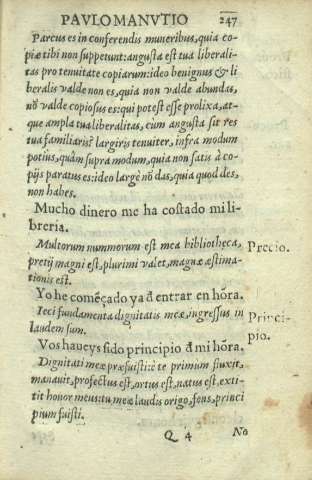 PAVLO MANVTIO 247
Parcus es in conferendis muneribus, quia co-
piæ tibi non suppetunt: angusta est tua liberali-
tas pro tenuitate copiarum: ideo benignus & li
beralis valde non es, quia non valde abundas,
nō valde copiosus es: qui potest esse prolixa, at-
que ampla tua liberalitas, cum angusta sit res
tua familiaris? largiris tenuiter, infra modum
potius, quàm supra modum, quia non satis à co-
pijs paratus es: ideo largè nō das, quia quod des,
non habes.
Mucho dinero me ha costado mi li-
breria.
Multorum nummorum est mea bibliotheca, Precio.
pretij magni est, plurimi valet, magnæ æstima-
tionis est.
Yo he comēçado ya ā entrar en hōra.
Ieci fundamenta dignitatis meæ, ingressus in Princi-
laudem sum. pio.
Vos haueys sido principio ā mi hōra.
Dignitati meæ præfuisti: è te primum fluxit,
manauit, profectus est, ortus est, natus est, exti-
tit honor meus: tu meæ laudis origo, fons, princi
pium fuisti.
Q 4 No